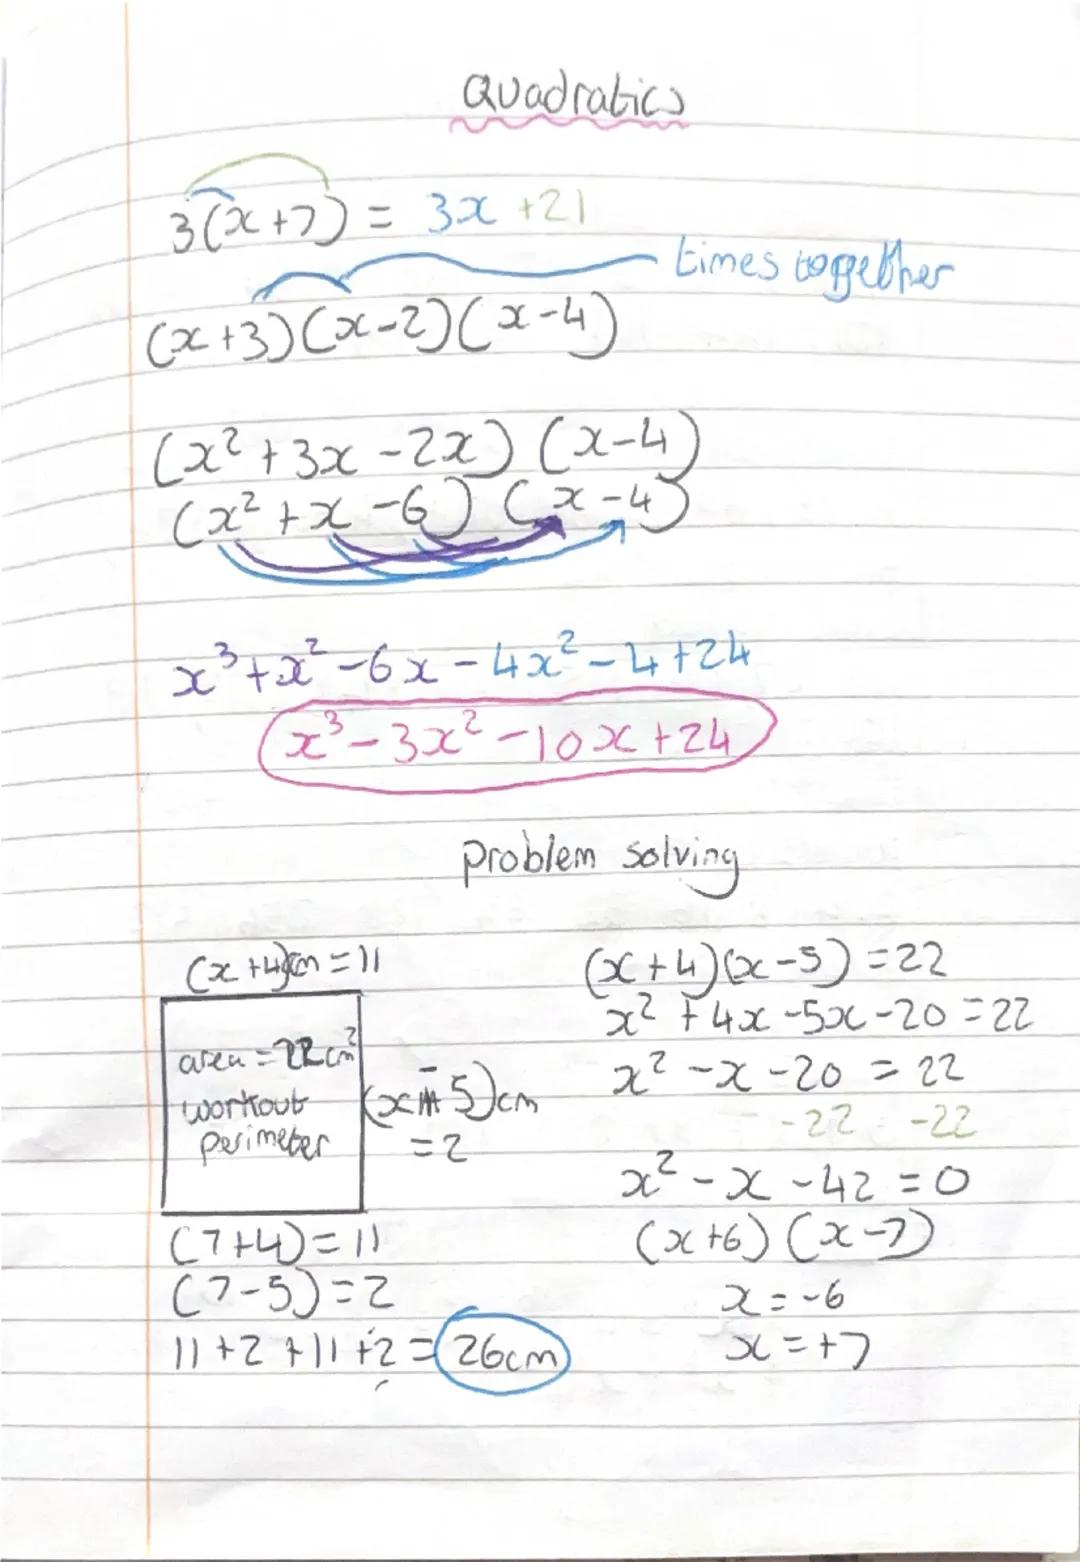 Quadratics
3(x+7) = 3x +21
times together
(x+3)(x-2)(x-4)
(x²+3x-2x) (x-4)
(x²+x-6) (x-4)
x³+x²-6x-4x²-4+24
x³-3x²-10x+24
problem solving
(x+4)cm = 11
area = 22cm²
workout
perimeter
(x-5)cm
=2
(7+4)=11
(7-5)=2
11+2+11+2=26cm
(x+4)(x-5)=22
x²+4x-5x-20=22
x²-x-20=22
-22 -22
x²-x-42=0
(x+6)(x-7)
x=-6
x=+7